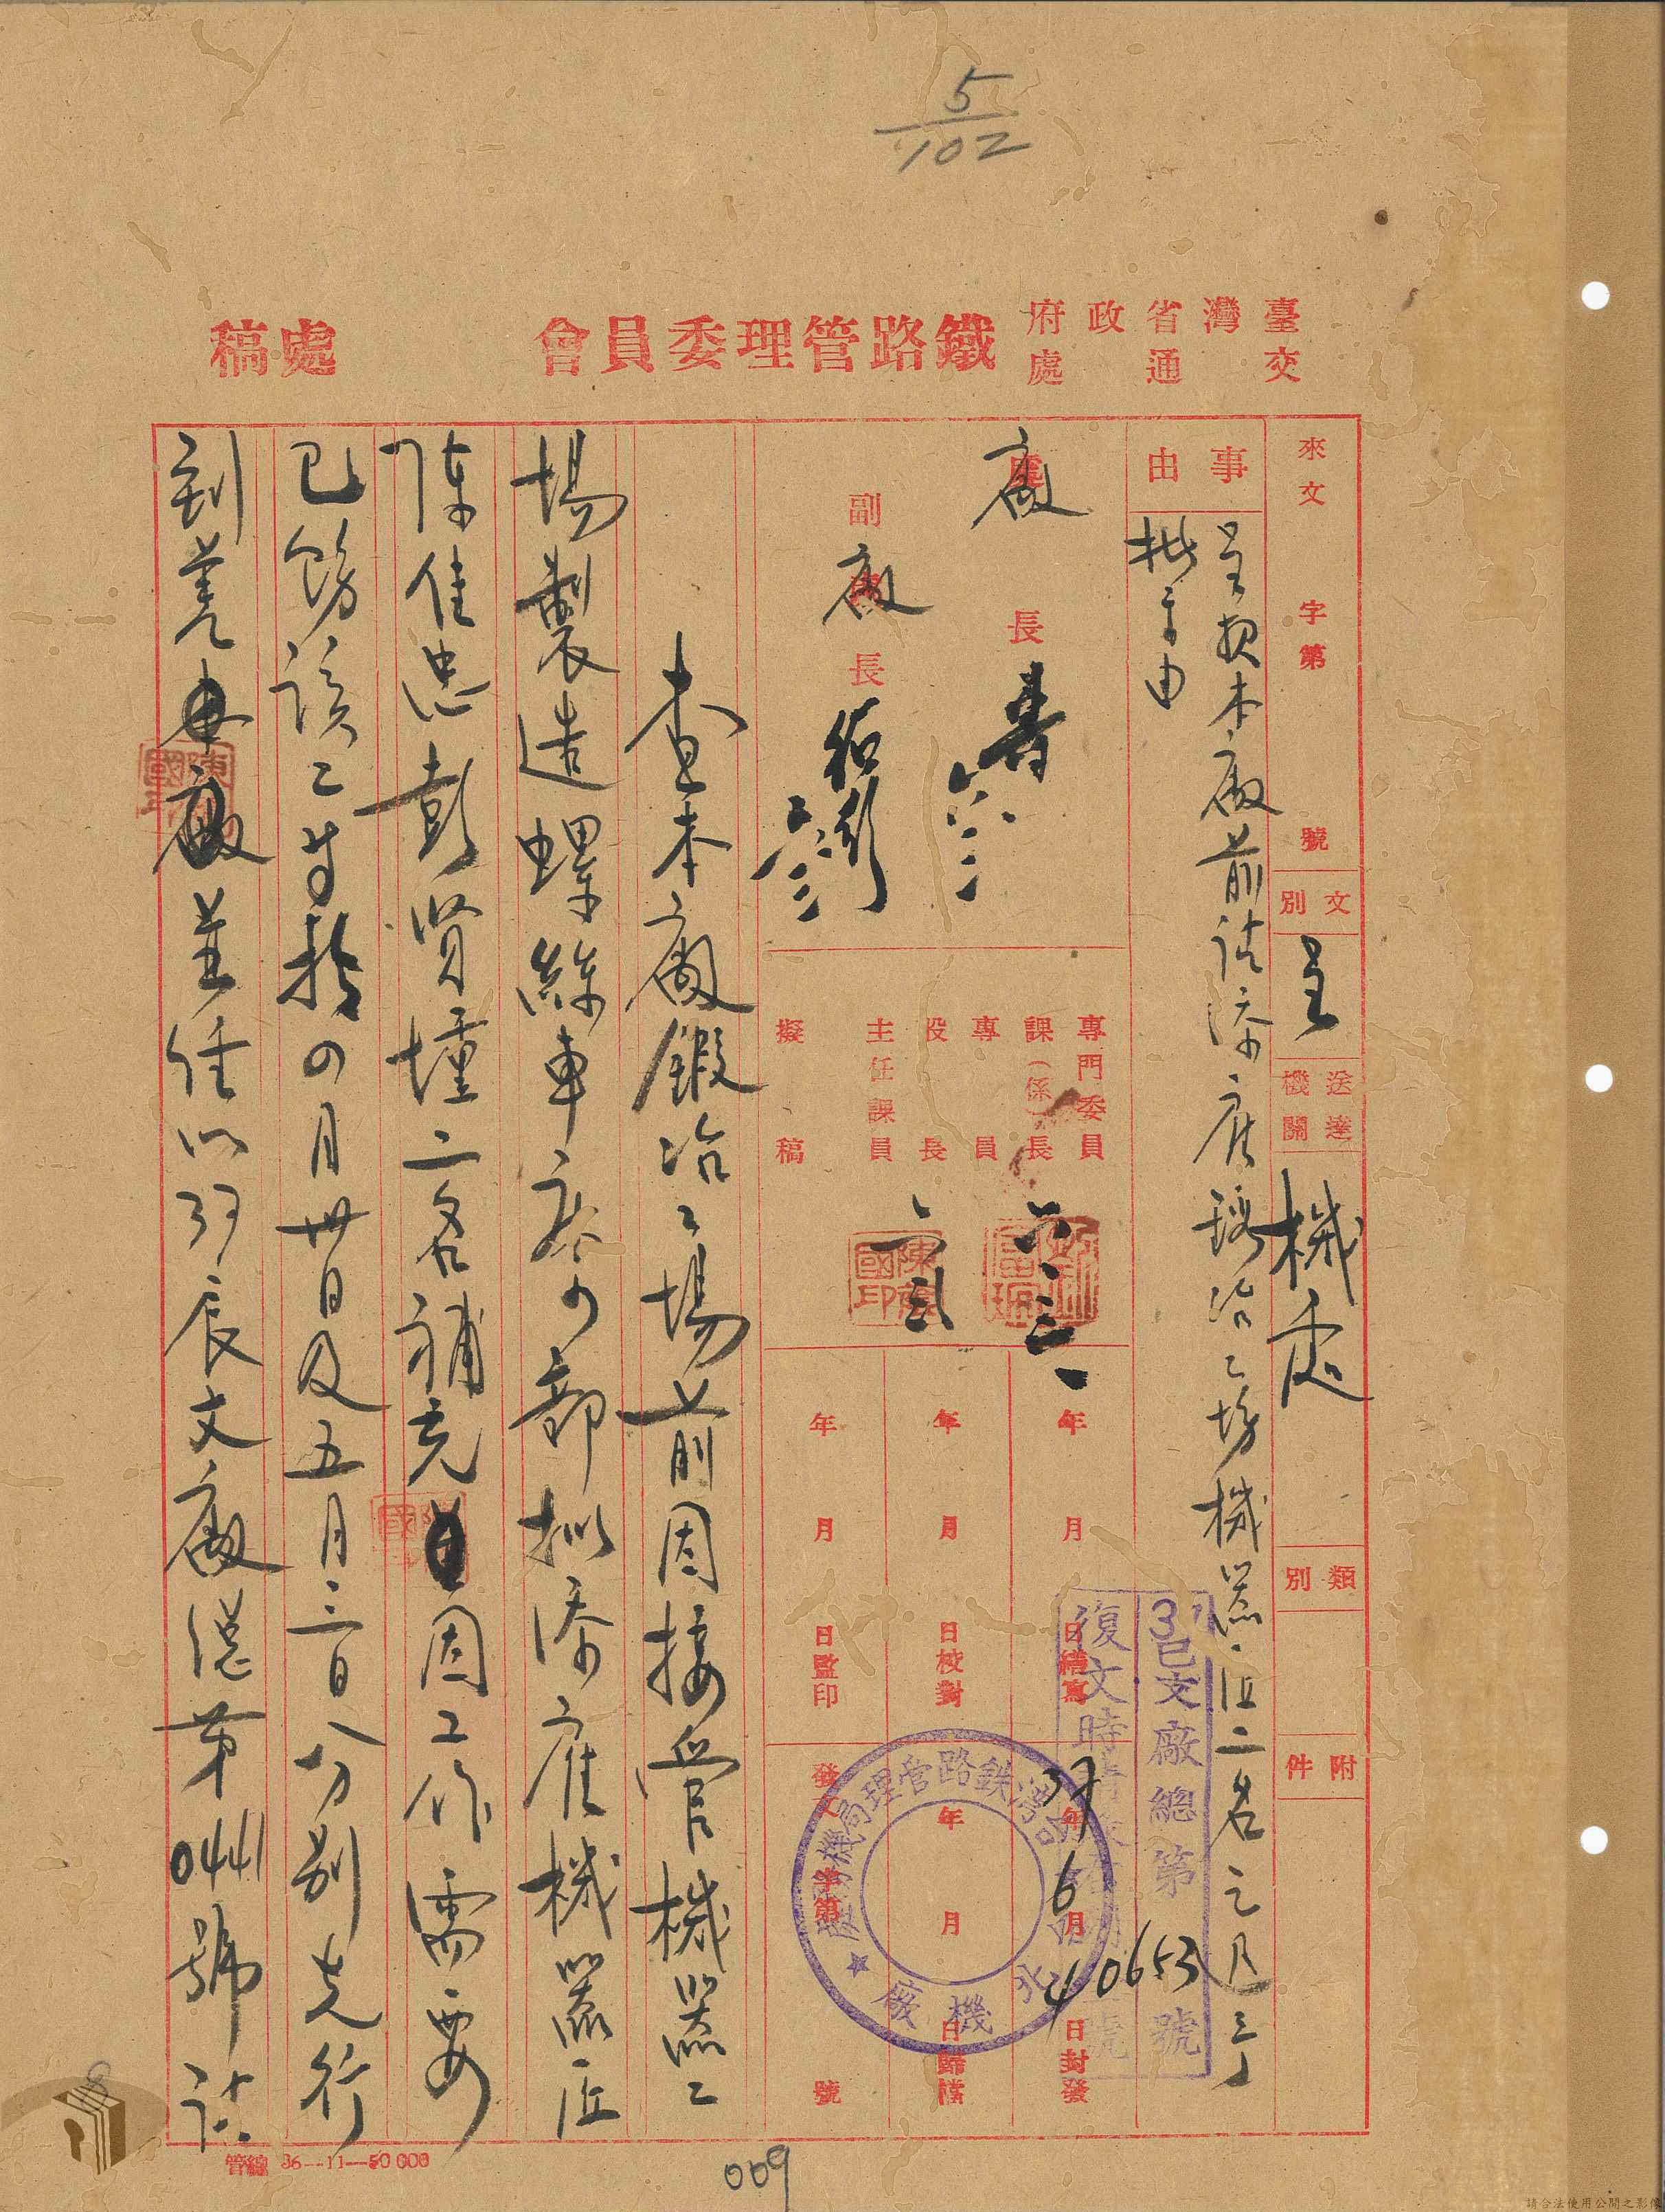 5/102
臺灣省政府
交通處
鐵路管理委員會
處稿
來文 字第 號
文別 呈
送達機關 機處
類別
附件
事由
呈報本廠前請添雇鍛冶工場機器匠二名之月
批示由
廠長
副廠長
六、三
六、三
專門委員
課(係)長
專員
股長
主任課員
擬稿
六、三
年 月 日繕寫
年 月 日校對
年 月 日監印
37年6月4日封發
年 月 日歸檔
發文 字第 號
37已文廠總第 40653 號
復文時請
臺灣鐵路管理局機務處
台北機廠
查本廠鍛冶工場前因接管機器工
場製造螺絲車
部擬添雇機器匠
陳佳忠彭賢壥二名補充因工作需要
已飭該工等於四月卅日及五月三日分別先行
到差並經以37辰文廠總第0441號請
管綠 36--11--50 000
009
8
請合法使用公開之影像